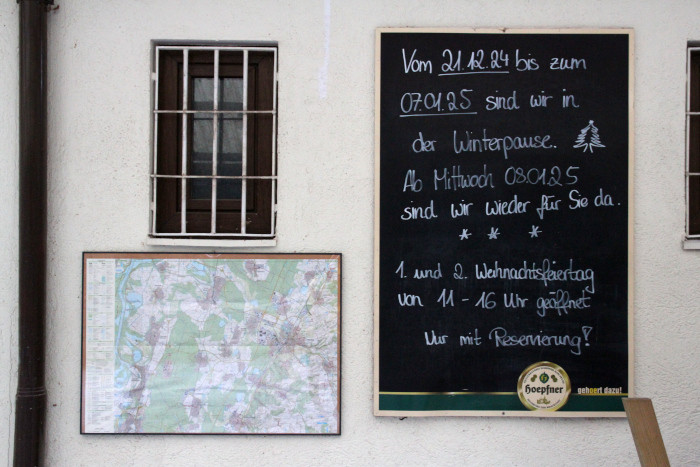 Vom 21.12.24 bis zum
07.01.25 sind wir in
der Winterpause.
Ab Mittwoch 08.01.25
sind wir wieder für Sie da.
* * *
1. und 2. Weihnachtsfeiertag
von 11 - 16 Uhr geöffnet
Nur mit Reservierung!
Hoepfner
gehoert dazu!